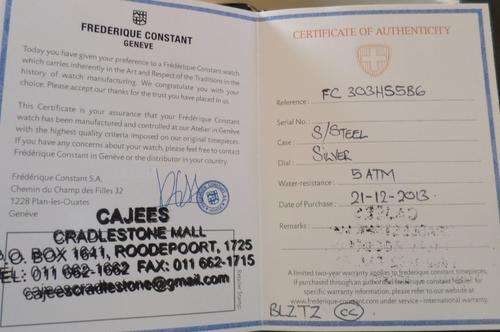 FREDERIQUE CONSTANT
GENEVE
Today you have given your preference to a Frédérique Constant watch
which carries inherently in the Art and Respect of the Traditions in the
history of watch manufacturing. We congratulate you with your
choice. Please accept our thanks for the trust you have placed in us.
This Certificate is your assurance that your Frédérique Constant
watch has been manufactured and controlled at our Atelier in Genève
with the highest quality criteria imposed on our original timepieces.
If you have any concerns about your watch, please feel free to contact
Frédérique Constant in Genève or the distributor in your country.
Frédérique Constant S.A.
Chemin du Champ des Filles 32
1228 Plan-les-Ouates
Genève
CAJEES
CRADLESTONE MALL
P.O. BOX 1641, ROODEPOORT, 1725
TEL: 011 662-1662 FAX: 011 662-1715
cajeescradlestone@gmail.com
CERTIFICATE OF AUTHENTICITY
Reference: FC 303HS5B6
Serial No.:
Case: S/STEEL
Dial: SILVER
Water-resistance: 5 ATM
Date of Purchase: 21-12-2013
Remarks:
A limited two-year warranty applies to frederique constant timepieces
if purchased through an authorized frederique constant
specific warranty information, please refer to our website at
www.frederique-constant.com under service - international warranty.
BLZTZ CC